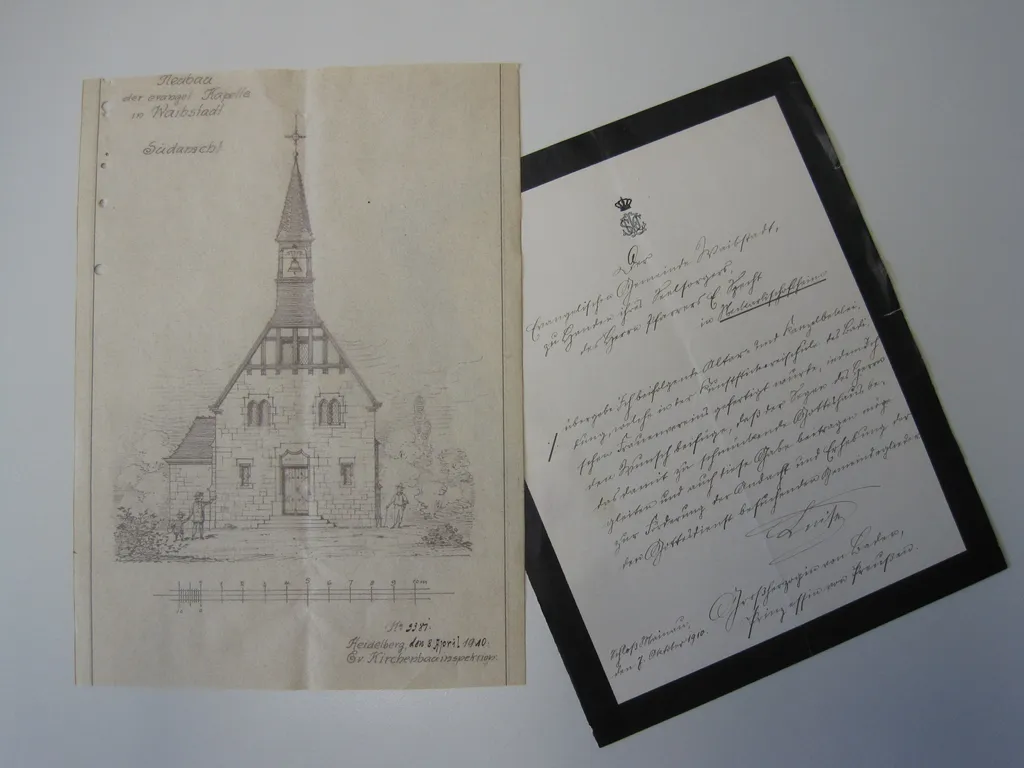 Neubau
der evangel. Kapelle
in Waibstadt
Südansicht
1 2 3 4 5 6 7 8 9 10 m
Nº 3381.
Heidelberg, den 8. April 1910.
Ev. Kirchenbauinspektion.
Der
Evangelischen Gemeinde Waibstadt,
zu Händen ihres Seelsorgers,
des Herrn Pfarrers E. Specht
in Neckarbischofsheim
übergebe Ich beifolgende Altar- und Kanzelbeklei-
dung, welche in der Kunststickereischule des Badi-
schen Frauenvereins gefertigt wurde, indem Ich
den Wunsch beifüge, daß der Segen des Herrn
das damit zu schmückende Gotteshaus be-
gleiten und auch diese Gabe beitragen möge
zur Förderung der Andacht und Erhebung der
den Gottesdienst besuchenden Gemeindeglieder.
Luise
Großherzogin von Baden,
Prinzessin von Preußen.
Schloß Mainau,
den 7. Oktober 1910.